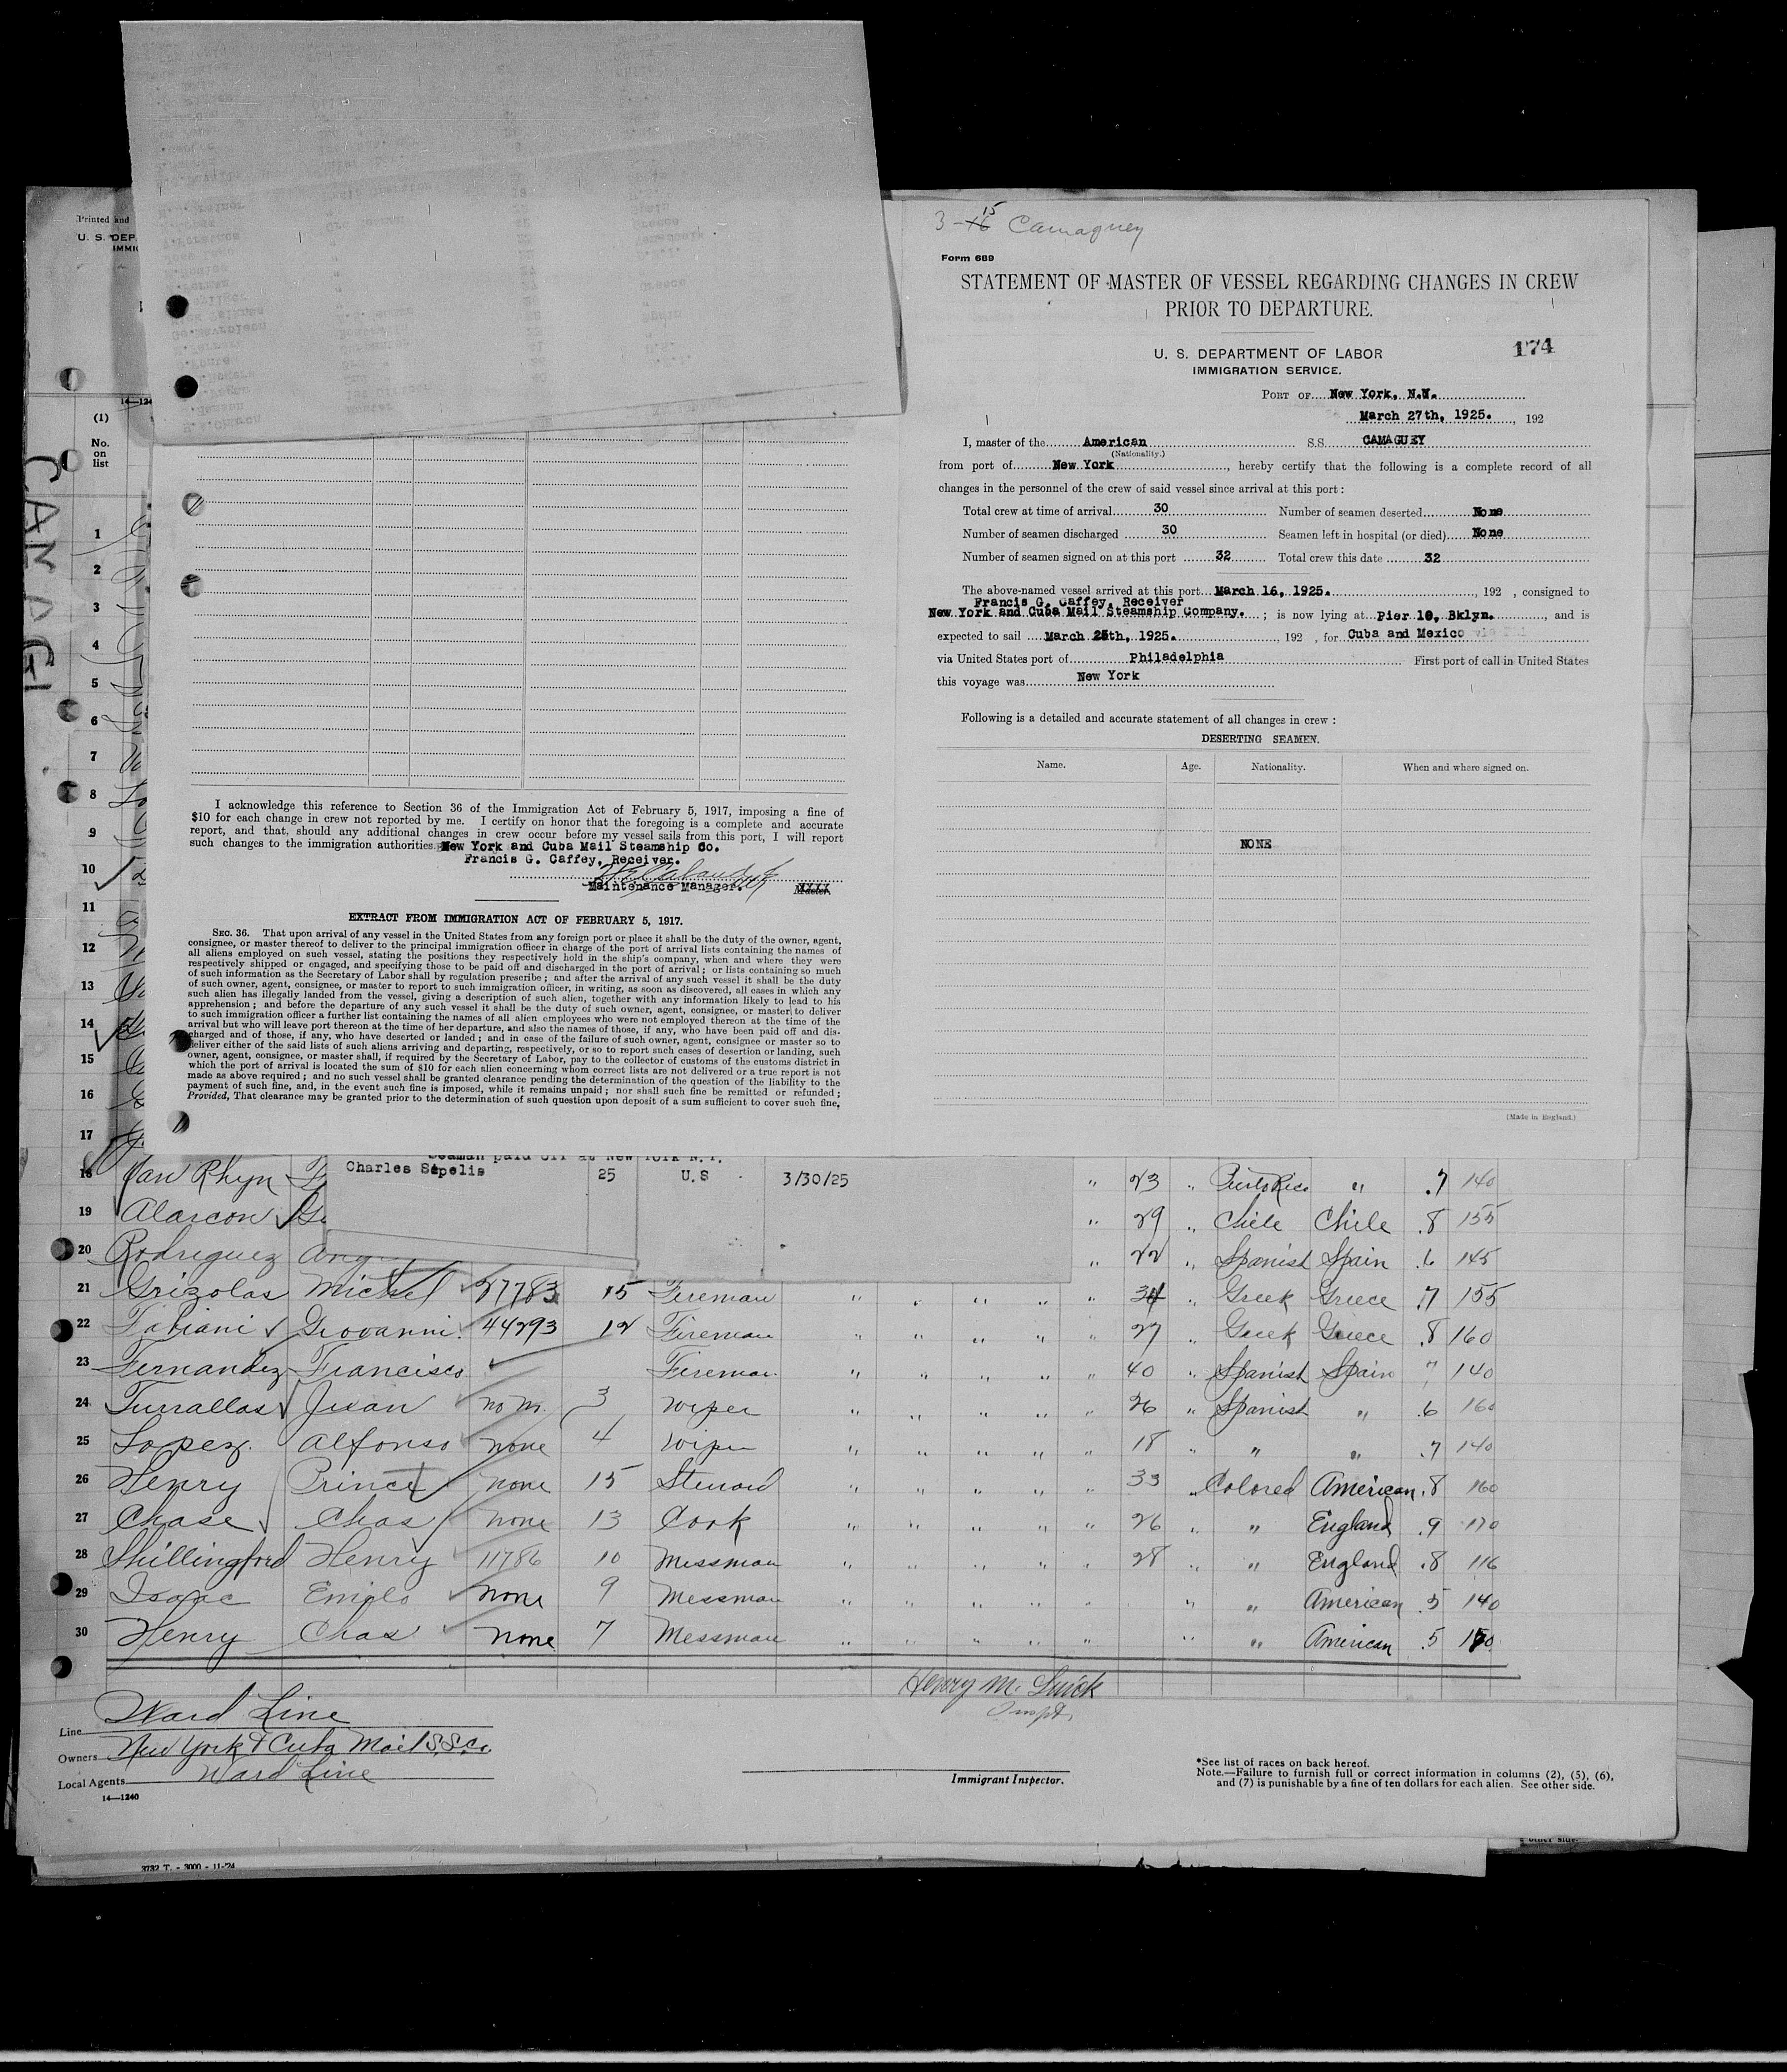 3-15 Camaguey
Form 689
STATEMENT OF MASTER OF VESSEL REGARDING CHANGES IN CREW
PRIOR TO DEPARTURE.
U. S. DEPARTMENT OF LABOR
IMMIGRATION SERVICE.
174
PORT OF New York, N.Y.
March 27th, 1925. , 192
I, master of the American S.S. CAMAGUEY
(Nationality.)
from port of New York , hereby certify that the following is a complete record of all
changes in the personnel of the crew of said vessel since arrival at this port:
Total crew at time of arrival 30 Number of seamen deserted None
Number of seamen discharged 30 Seamen left in hospital (or died) None
Number of seamen signed on at this port 32 Total crew this date 32
The above-named vessel arrived at this port March 16, 1925. , 192 , consigned to
Francis G. Caffey, Receiver
New York and Cuba Mail Steamship Company. ; is now lying at Pier 10, Bklyn. , and is
expected to sail March 28th, 1925. , 192 , for Cuba and Mexico
via United States port of Philadelphia First port of call in United States
this voyage was New York
Following is a detailed and accurate statement of all changes in crew :
DESERTING SEAMEN.
Name. Age. Nationality. When and where signed on.
NONE
(Made in England.)
Printed and
U. S. DEP
IMMI
14—124
(1)
No.
on
list
CAMAGU
1
2
3
4
5
6
7
8
9
10
11
12
13
14
15
16
17
I acknowledge this reference to Section 36 of the Immigration Act of February 5, 1917, imposing a fine of
$10 for each change in crew not reported by me. I certify on honor that the foregoing is a complete and accurate
report, and that, should any additional changes in crew occur before my vessel sails from this port, I will report
such changes to the immigration authorities. New York and Cuba Mail Steamship Co.
Francis G. Caffey, Receiver.
Maintenance Manager.
EXTRACT FROM IMMIGRATION ACT OF FEBRUARY 5, 1917.
SEC. 36. That upon arrival of any vessel in the United States from any foreign port or place it shall be the duty of the owner, agent,
consignee, or master thereof to deliver to the principal immigration officer in charge of the port of arrival lists containing the names of
all aliens employed on such vessel, stating the positions they respectively hold in the ship's company, when and where they were
respectively shipped or engaged, and specifying those to be paid off and discharged in the port of arrival; or lists containing so much
of such information as the Secretary of Labor shall by regulation prescribe; and after the arrival of any such vessel it shall be the duty
of such owner, agent, consignee, or master to report to such immigration officer, in writing, as soon as discovered, all cases in which any
such alien has illegally landed from the vessel, giving a description of such alien, together with any information likely to lead to his
apprehension; and before the departure of any such vessel it shall be the duty of such owner, agent, consignee, or master to deliver
to such immigration officer a further list containing the names of all alien employees who were not employed thereon at the time of the
arrival but who will leave port thereon at the time of her departure, and also the names of those, if any, who have been paid off and dis-
charged and of those, if any, who have deserted or landed; and in case of the failure of such owner, agent, consignee or master so to
deliver either of the said lists of such aliens arriving and departing, respectively, or so to report such cases of desertion or landing, such
owner, agent, consignee, or master shall, if required by the Secretary of Labor, pay to the collector of customs of the customs district in
which the port of arrival is located the sum of $10 for each alien concerning whom correct lists are not delivered or a true report is not
made as above required; and no such vessel shall be granted clearance pending the determination of the question of the liability to the
payment of such fine, and, in the event such fine is imposed, while it remains unpaid; nor shall such fine be remitted or refunded;
Provided, That clearance may be granted prior to the determination of such question upon deposit of a sum sufficient to cover such fine,
Seaman paid off at New York N.Y.
Charles Sepelis 25 U.S 3/30/25
18 Van Rhyn " 23 " Puerto Rico " .7 140
19 Alarcon " 29 " Chile Chile .8 155
20 Rodriguez " 22 " Spanish Spain .6 145
21 Grizolas Michel 27783 15 Fireman " " " " " 34 " Greek Greece .7 155
22 Fabiani Giovanni 44293 12 Fireman " " " " " 27 " Greek Greece .8 160
23 Fernandez Francisco Fireman " " " " " 40 " Spanish Spain 7 140
24 Turrallas Juan 3 Wiper " " " " " 26 " Spanish " .6 160
25 Lopez Alfonso none 4 Wiper " " " " " 18 " " " .7 140
26 Henry Prince none 15 Steward " " " " " 33 " Colored American .8 160
27 Chase Chas none 13 Cook " " " " " 26 " " England .9 170
28 Shillingford Henry 11786 10 Messman " " " " " 28 " " England .8 116
29 Isaac Emilo none 9 Messman " " " " " " " American .5 140
30 Henry Chas none 7 Messman " " " " " " " American .5 150
Henry M. Quick
Inspt.
Line Ward Line
Owners New York & Cuba Mail S.S.Co.
Local Agents Ward Line
14—1240
Immigrant Inspector.
*See list of races on back hereof.
Note.—Failure to furnish full or correct information in columns (2), (5), (6),
and (7) is punishable by a fine of ten dollars for each alien. See other side.
other side.
3732 T. - 3000 - 11-'24